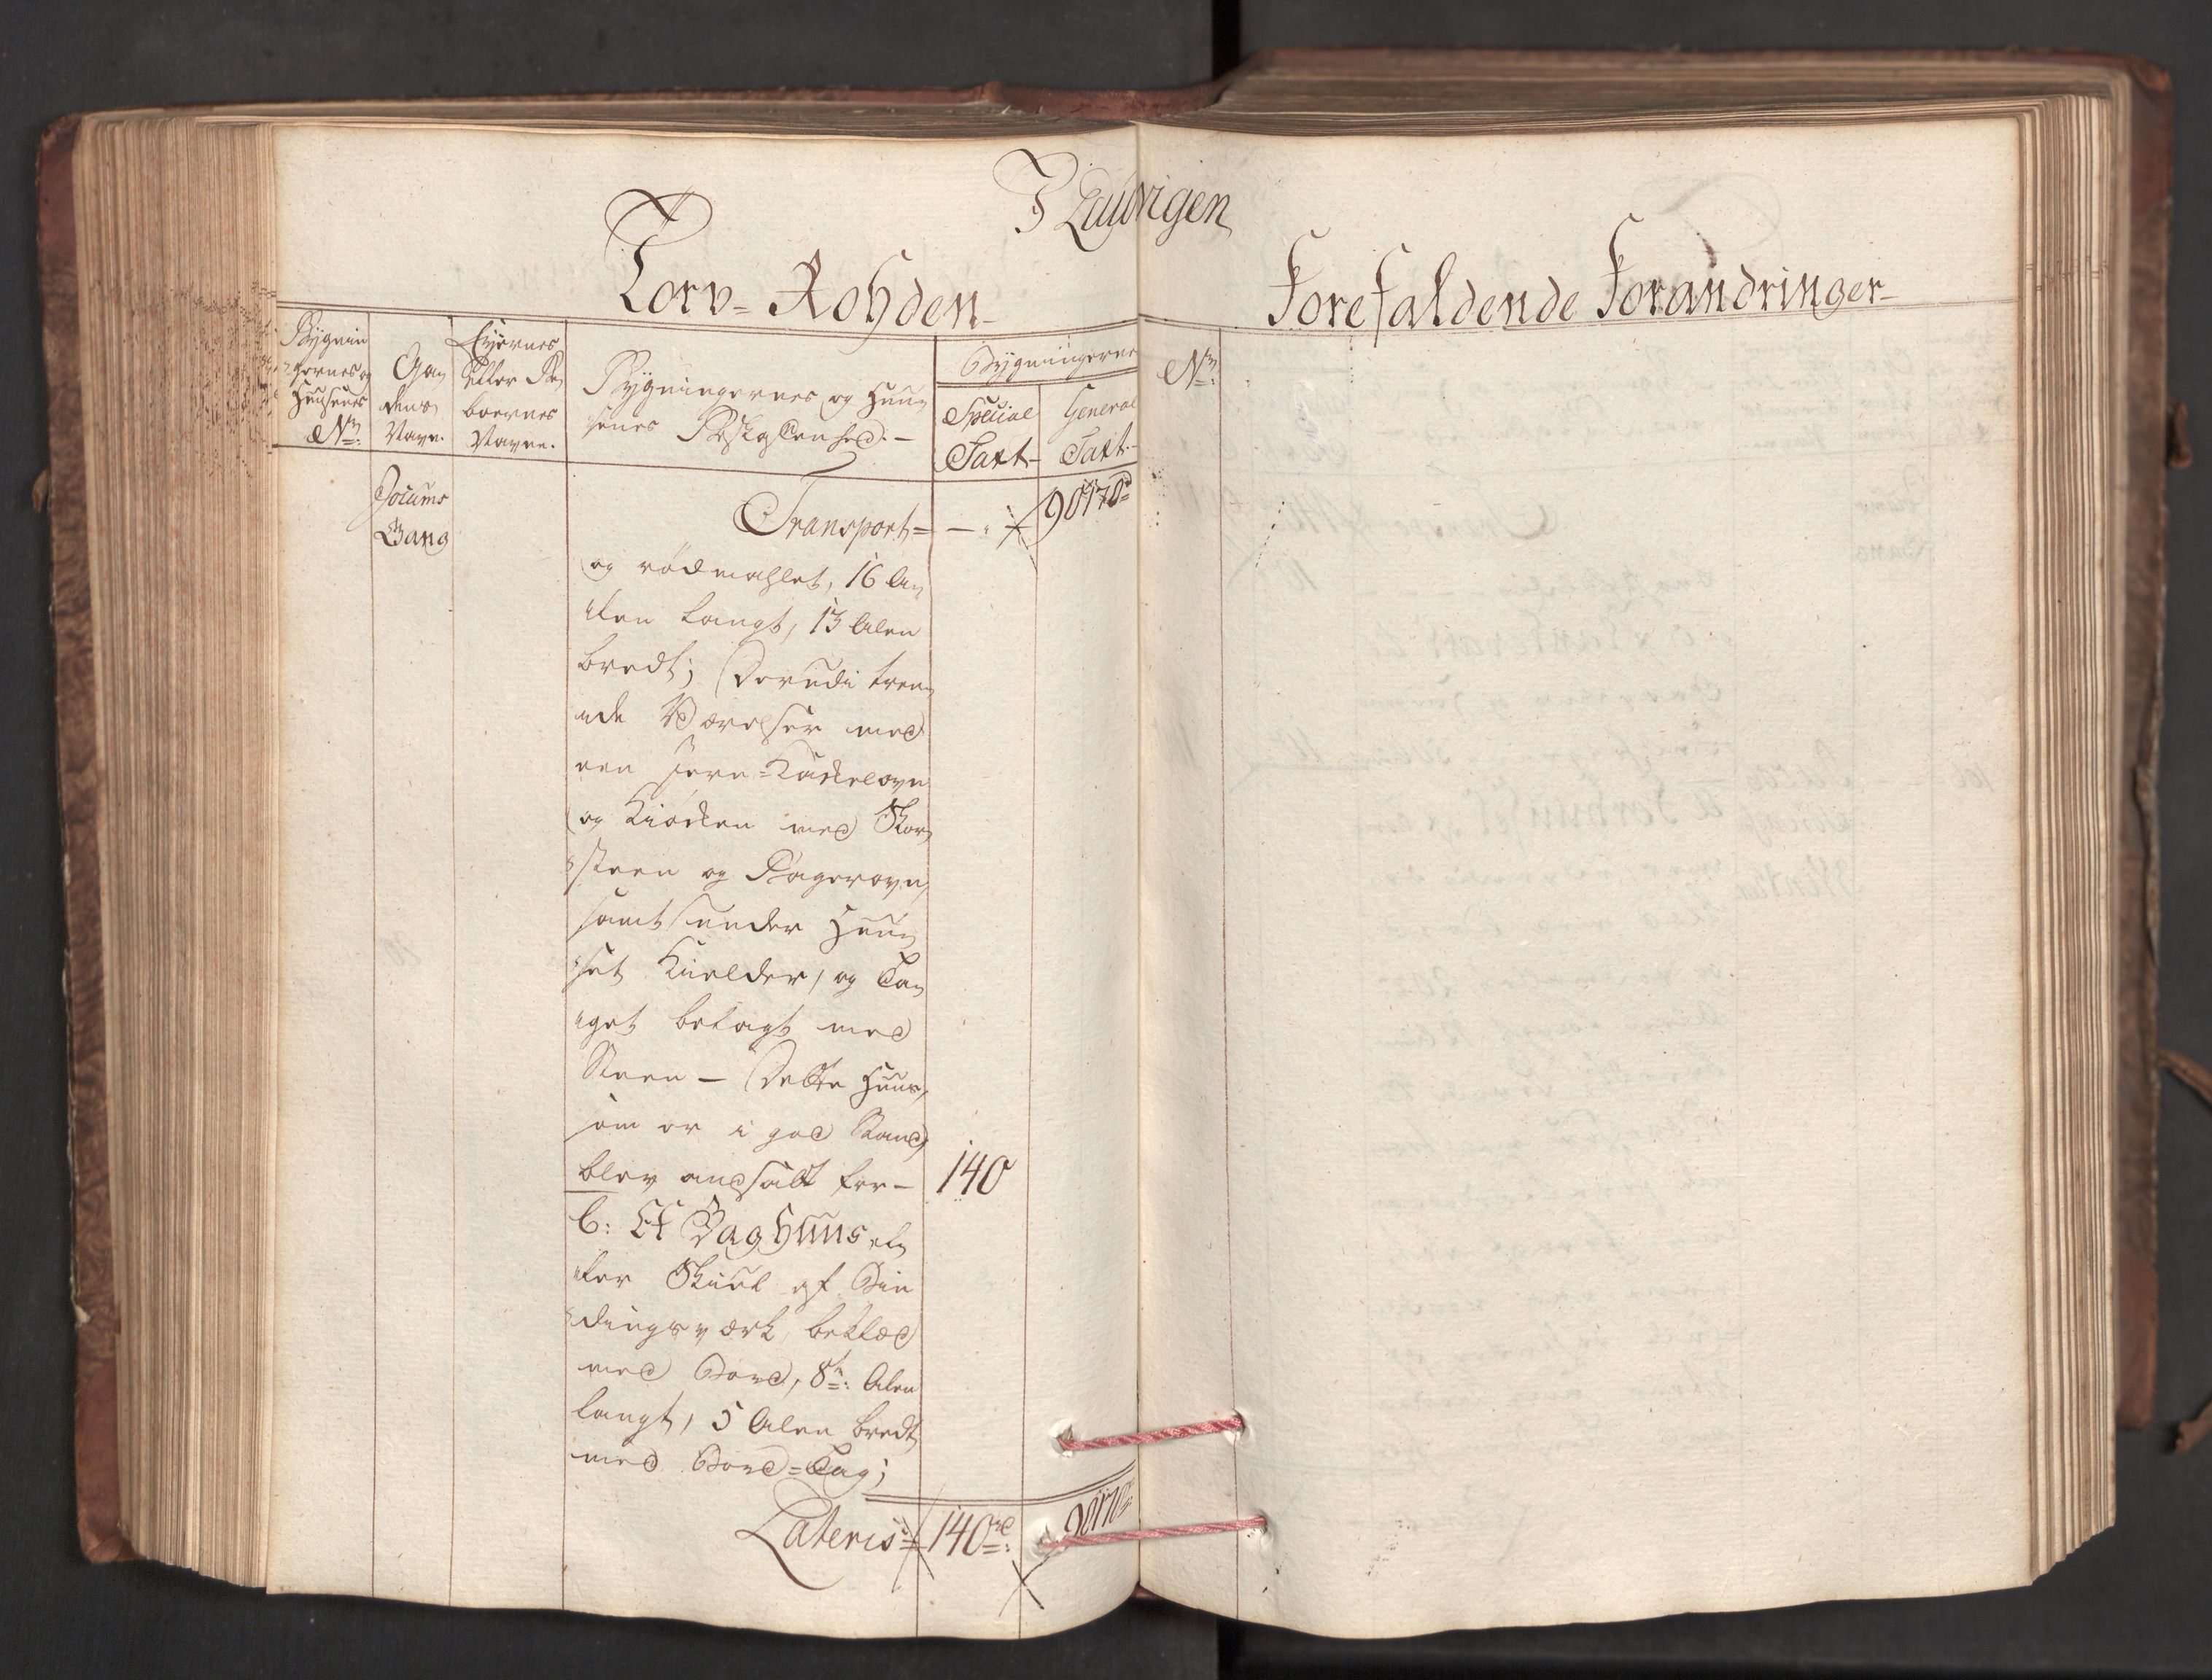 I Laurvigen
Torv-Rohden
Forefaldende Forandringer
Bygnin
gernes og
Huusenes
No.
Ga
dens
Navn.
Eyernes
eller Be
boernes
Navne.
Bygningernes og Huu
senes Beskaffenhed.
Bygningernes
Special
Taxt
General
Taxt
No.
Jocums
Gang
Transport = 90170
og rödmahlet, 16 Al
len langt, 13 Alen
bredt; Derudi tven
nde Værelser med
een Jern-Kackelovn
og Kiöcken med Skor
steen og Bagerovn,
samt under Huu
set Kielder, og Ta
get belagt med
Steen – Dette Huus,
som er i god Stand
blev ansatt for – 140
b: Et Baghuus el
ler Skiul af Bin
dingsværk, beklæd
med Bord, 8te Alen
langt, 5 Alen bredt
med Bord-Tag;
Lateris 140 rd: 90170